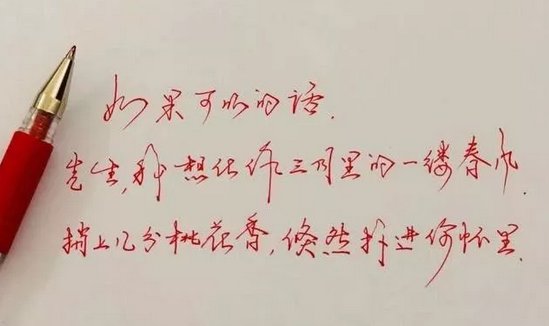 如果可以的话,
先生,我想化作三月里的一缕春风
捎上几分桃花香,倏然扑进你怀里